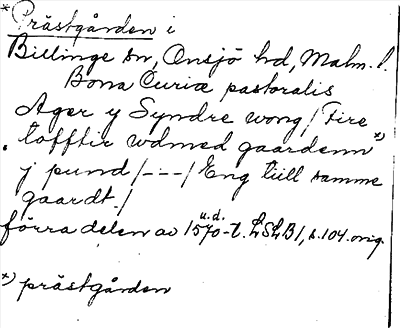 * Prästgården i
Billinge sn, Onsjö hd, Malm. l.
Bona Curiæ pastoralis
Ager y Syndre wong / Fire
tofftir wdmed gaardenn *)
j pund / --- / Eng till samme
gaardt. /
förra delen av 1570-t. u.d. LSLB1, s. 104. orig.
*) prästgården